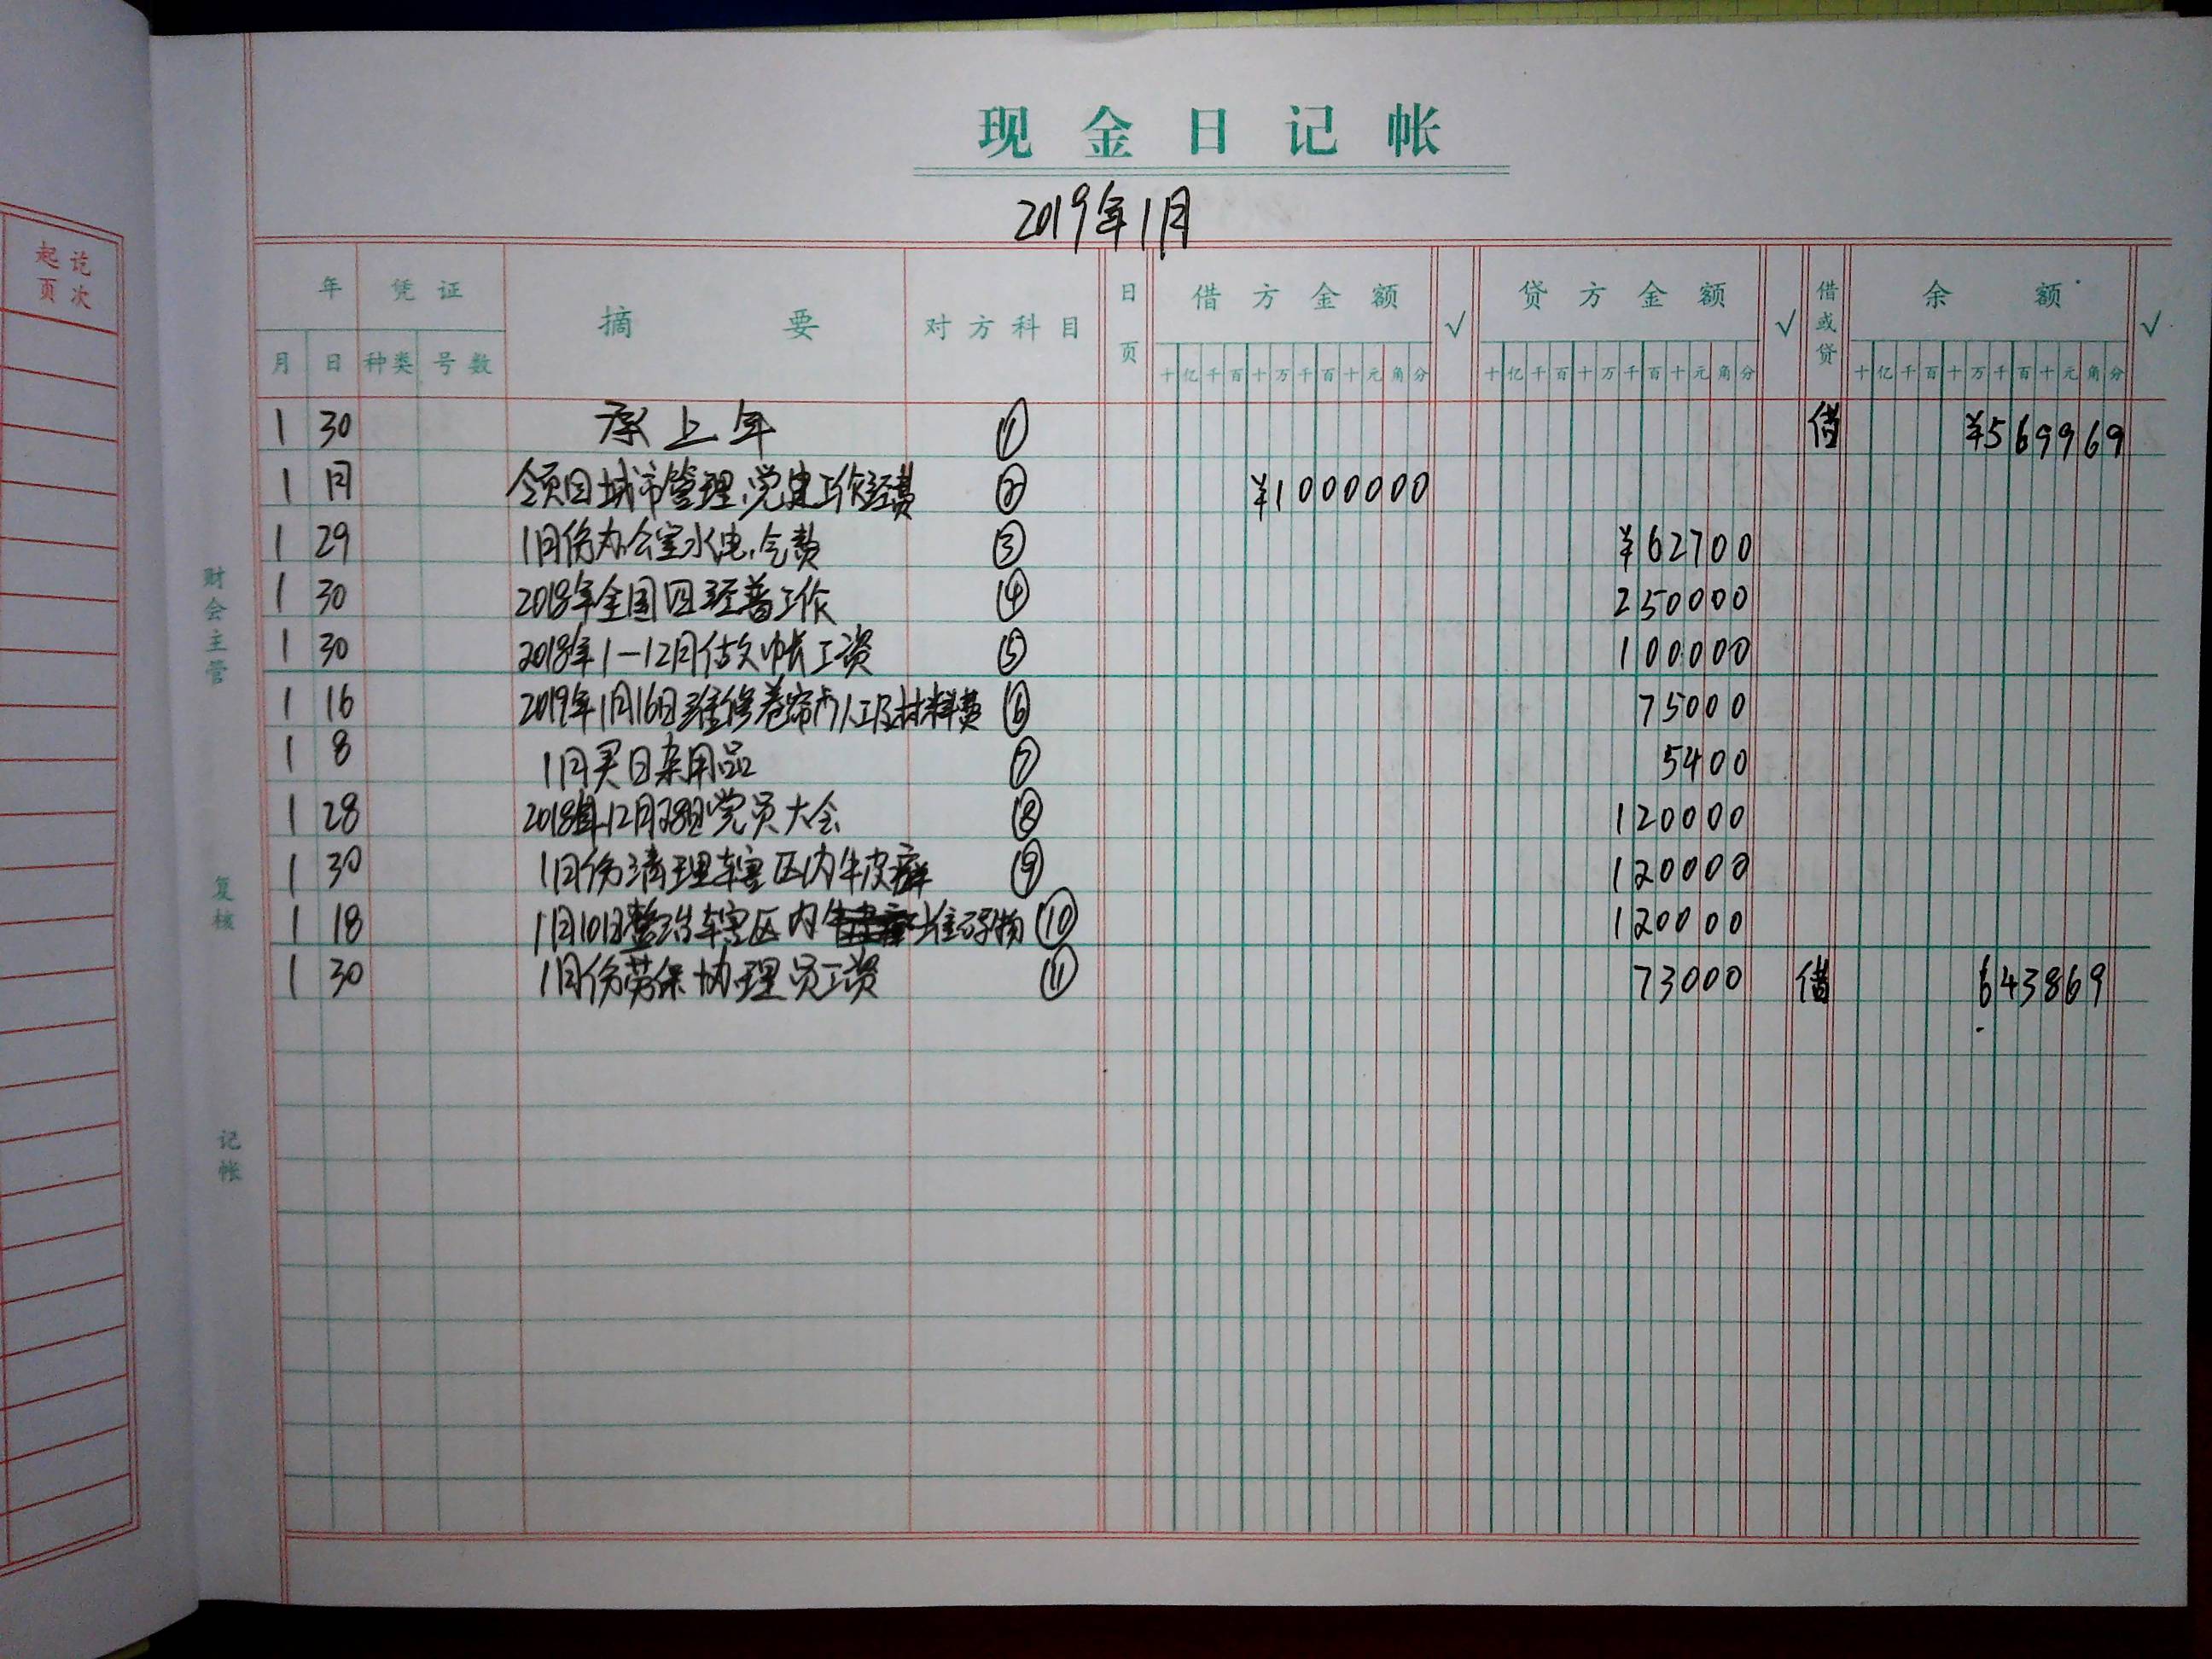 起讫
页次
现金日记帐
2019年1月
年 凭证 摘要 对方科目 日页 借方金额 √ 贷方金额 √ 借或贷 余额 √
月 日 种类 号数 十亿千百十万千百十元角分 十亿千百十万千百十元角分 十亿千百十万千百十元角分
1 30 承上年 ① 借 ¥569969
1 月 领回城市管理、党建工作经费 ② ¥1000000
1 29 1月份办公室水、电、气费 ③ ¥62700
1 30 2018年全国四经普工作 ④ 250000
1 30 2018年1-12月做帐工资 ⑤ 100000
1 16 2019年1月16日维修卷帘门人工及材料费 ⑥ 75000
1 8 1月买日杂用品 ⑦ 5400
1 28 2018年12月28日党员大会 ⑧ 120000
1 30 1月份清理辖区内牛皮癣 ⑨ 120000
1 18 1月10日整治辖区内堆码物 ⑩ 120000
1 30 1月份劳保协理员工资 ⑪ 73000 借 643869
财会主管
复核
记帐